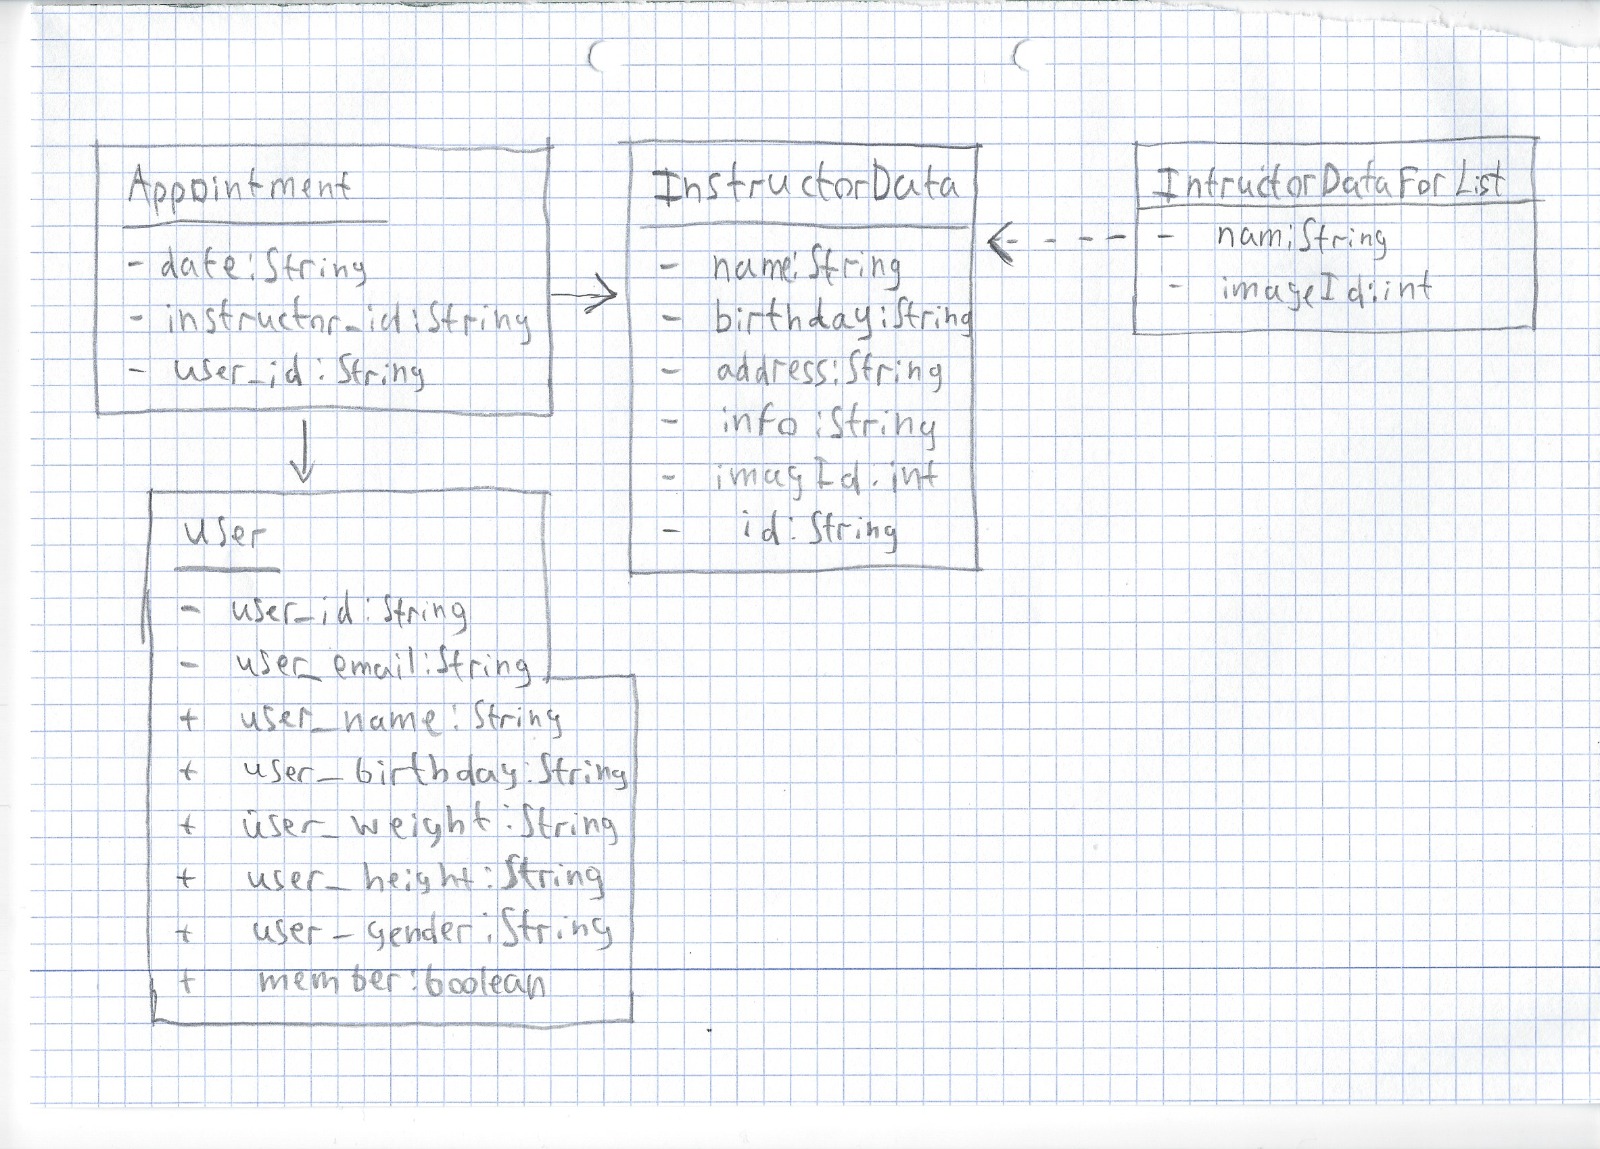 Appointment
- date:String
- instructor_id:String
- user_id:String
InstructorData
- name:String
- birthday:String
- address:String
- info:String
- imagId.int
- id:String
IntructorDataForList
- nam:String
- imageId:int
user
- user_id:String
- user_email:String
+ user_name:String
+ user_birthday:String
+ user_weight:String
+ user_height:String
+ user_gender:String
+ member:boolean